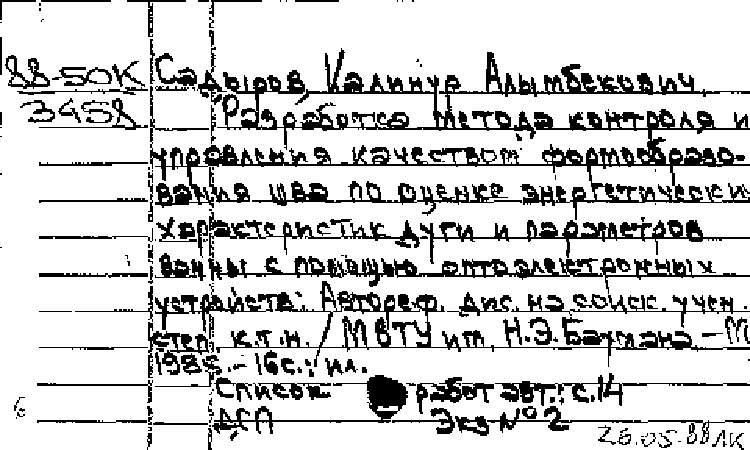 88-50К Садыров, Калинур Алымбекович.
3458 Разработка метода контроля и
управления качеством формообразо-
вания шва по оценке энергетически
характеристик дуги и параметров
ванны с помощью оптоэлектронных
устройств: Автореф. дис. на соиск. учен.
степ. к.т.н. / МВТУ им. Н.Э.Баумана. - М
198 .- 16с.: ил.
Список работ авт.: с.14
ДСП Экз №2
6 26.05.88 ЛК